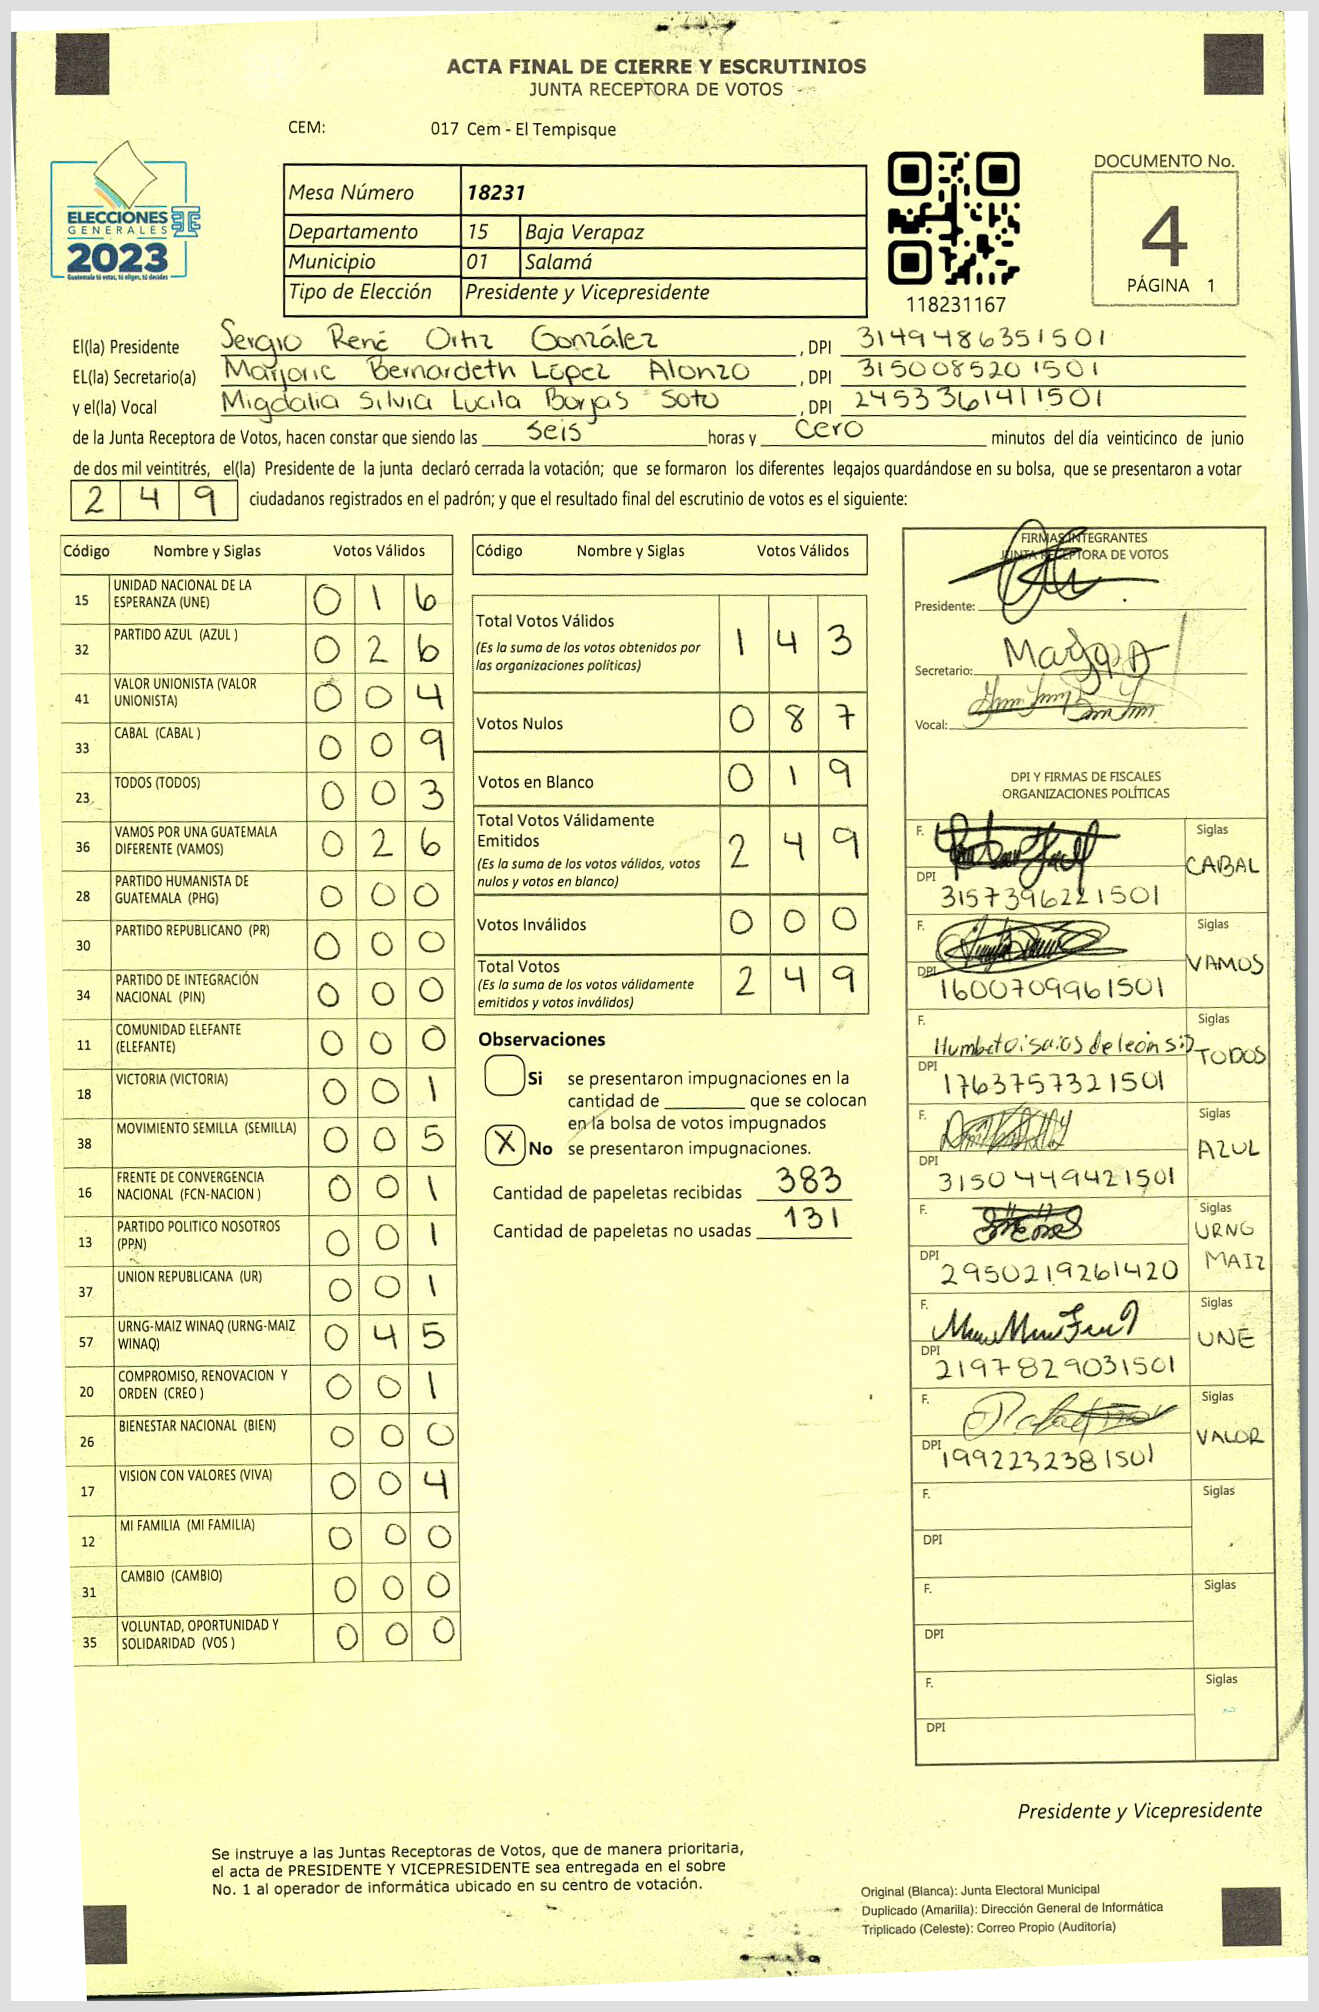 ACTA FINAL DE CIERRE Y ESCRUTINIOS
JUNTA RECEPTORA DE VOTOS
CEM: 017 Cem - El Tempisque
ELECCIONES
GENERALES
2023
Guatemala tú votas, tú eliges, tú decides
Mesa Número 18231
Departamento 15 Baja Verapaz
Municipio 01 Salamá
Tipo de Elección Presidente y Vicepresidente
118231167
DOCUMENTO No.
4
PÁGINA 1
El(la) Presidente Sergio René Ortiz González, DPI 3149486351501
EL(la) Secretario(a) Marjorie Bernardeth López Alonzo, DPI 3150085201501
y el(la) Vocal Migdalia Silvia Lucila Borjas Soto, DPI 2453361411501
de la Junta Receptora de Votos, hacen constar que siendo las seis horas y cero minutos del día veinticinco de junio
de dos mil veintitrés, el(la) Presidente de la junta declaró cerrada la votación; que se formaron los diferentes legajos quardándose en su bolsa, que se presentaron a votar
249 ciudadanos registrados en el padrón; y que el resultado final del escrutinio de votos es el siguiente:
Código Nombre y Siglas Votos Válidos
15 UNIDAD NACIONAL DE LA ESPERANZA (UNE) 016
32 PARTIDO AZUL (AZUL ) 026
41 VALOR UNIONISTA (VALOR UNIONISTA) 004
33 CABAL (CABAL ) 009
23 TODOS (TODOS) 003
36 VAMOS POR UNA GUATEMALA DIFERENTE (VAMOS) 026
28 PARTIDO HUMANISTA DE GUATEMALA (PHG) 000
30 PARTIDO REPUBLICANO (PR) 000
34 PARTIDO DE INTEGRACIÓN NACIONAL (PIN) 000
11 COMUNIDAD ELEFANTE (ELEFANTE) 000
18 VICTORIA (VICTORIA) 001
38 MOVIMIENTO SEMILLA (SEMILLA) 005
16 FRENTE DE CONVERGENCIA NACIONAL (FCN-NACION ) 001
13 PARTIDO POLITICO NOSOTROS (PPN) 001
37 UNION REPUBLICANA (UR) 001
57 URNG-MAIZ WINAQ (URNG-MAIZ WINAQ) 045
20 COMPROMISO, RENOVACION Y ORDEN (CREO ) 001
26 BIENESTAR NACIONAL (BIEN) 000
17 VISION CON VALORES (VIVA) 004
12 MI FAMILIA (MI FAMILIA) 000
31 CAMBIO (CAMBIO) 000
35 VOLUNTAD, OPORTUNIDAD Y SOLIDARIDAD (VOS ) 000
Código Nombre y Siglas Votos Válidos
Total Votos Válidos 143
(Es la suma de los votos obtenidos por
las organizaciones políticas)
Votos Nulos 087
Votos en Blanco 019
Total Votos Válidamente
Emitidos 249
(Es la suma de los votos válidos, votos
nulos y votos en blanco)
Votos Inválidos 000
Total Votos 249
(Es la suma de los votos válidamente
emitidos y votos inválidos)
Observaciones
Si se presentaron impugnaciones en la
cantidad de ________ que se colocan
en la bolsa de votos impugnados
X No se presentaron impugnaciones.
Cantidad de papeletas recibidas 383
Cantidad de papeletas no usadas 131
FIRMAS INTEGRANTES
JUNTA RECEPTORA DE VOTOS
Presidente:
Secretario:
Vocal:
DPI Y FIRMAS DE FISCALES
ORGANIZACIONES POLÍTICAS
F. Siglas CABAL
DPI 3157396221501
F. Siglas VAMOS
DPI 1600709961501
F. Humberto isaias de leon Siglas TODOS
DPI 1763757321501
F. Siglas AZUL
DPI 3150449421501
F. Siglas URNG MAIZ
DPI 2950219261420
F. Siglas UNE
DPI 2197829031501
F. Siglas VALOR
DPI 1992232381501
F. Siglas
DPI
F. Siglas
DPI
F. Siglas
DPI
Presidente y Vicepresidente
Se instruye a las Juntas Receptoras de Votos, que de manera prioritaria,
el acta de PRESIDENTE Y VICEPRESIDENTE sea entregada en el sobre
No. 1 al operador de informática ubicado en su centro de votación.
Original (Blanca): Junta Electoral Municipal
Duplicado (Amarilla): Dirección General de Informática
Triplicado (Celeste): Correo Propio (Auditoría)